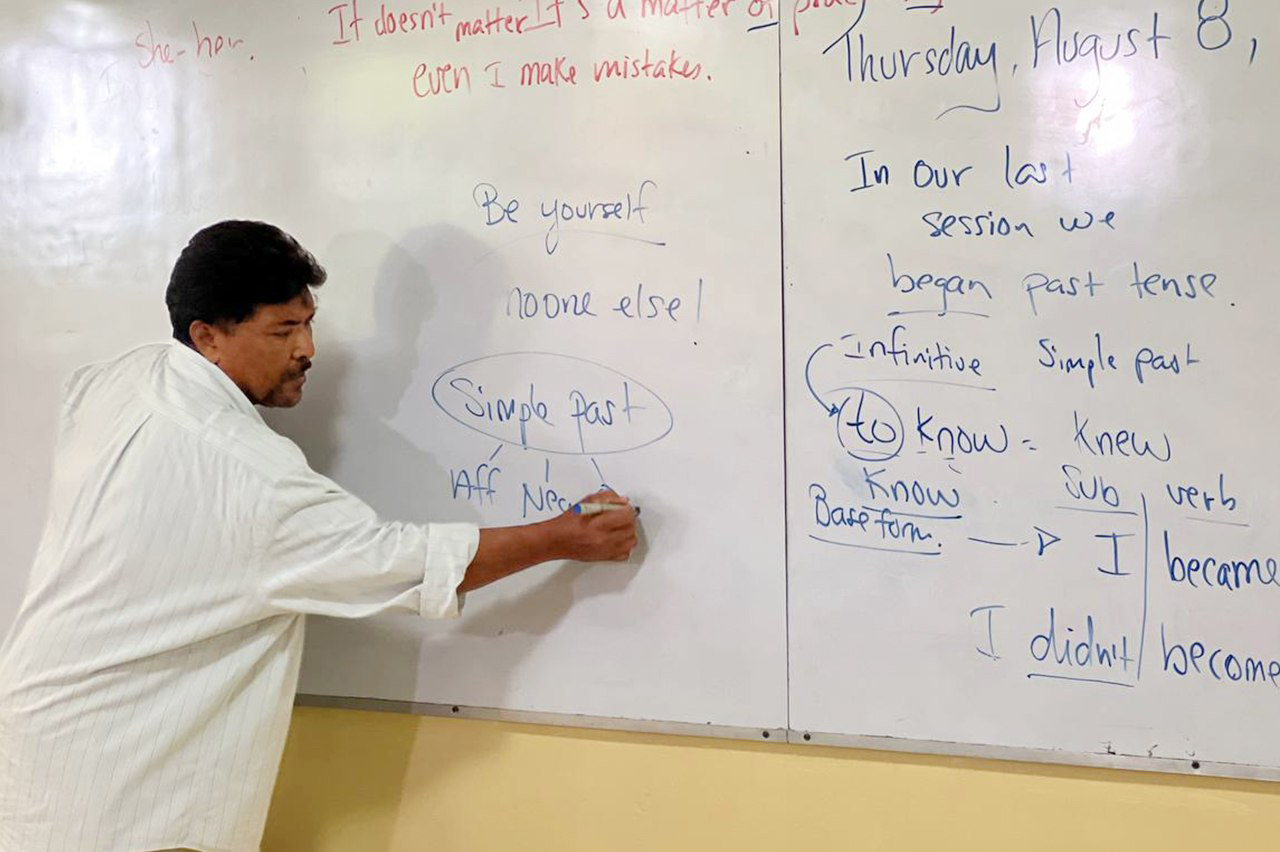 She-her.
It doesn't matter It's a matter of
even I make mistakes.
Be yourself
no one else!
Simple past
Aff
Thursday, August 8,
In our last
session we
began past tense.
Infinitive Simple past
(to) know = knew
Know
Base form.
Sub verb
I became
I didn't become